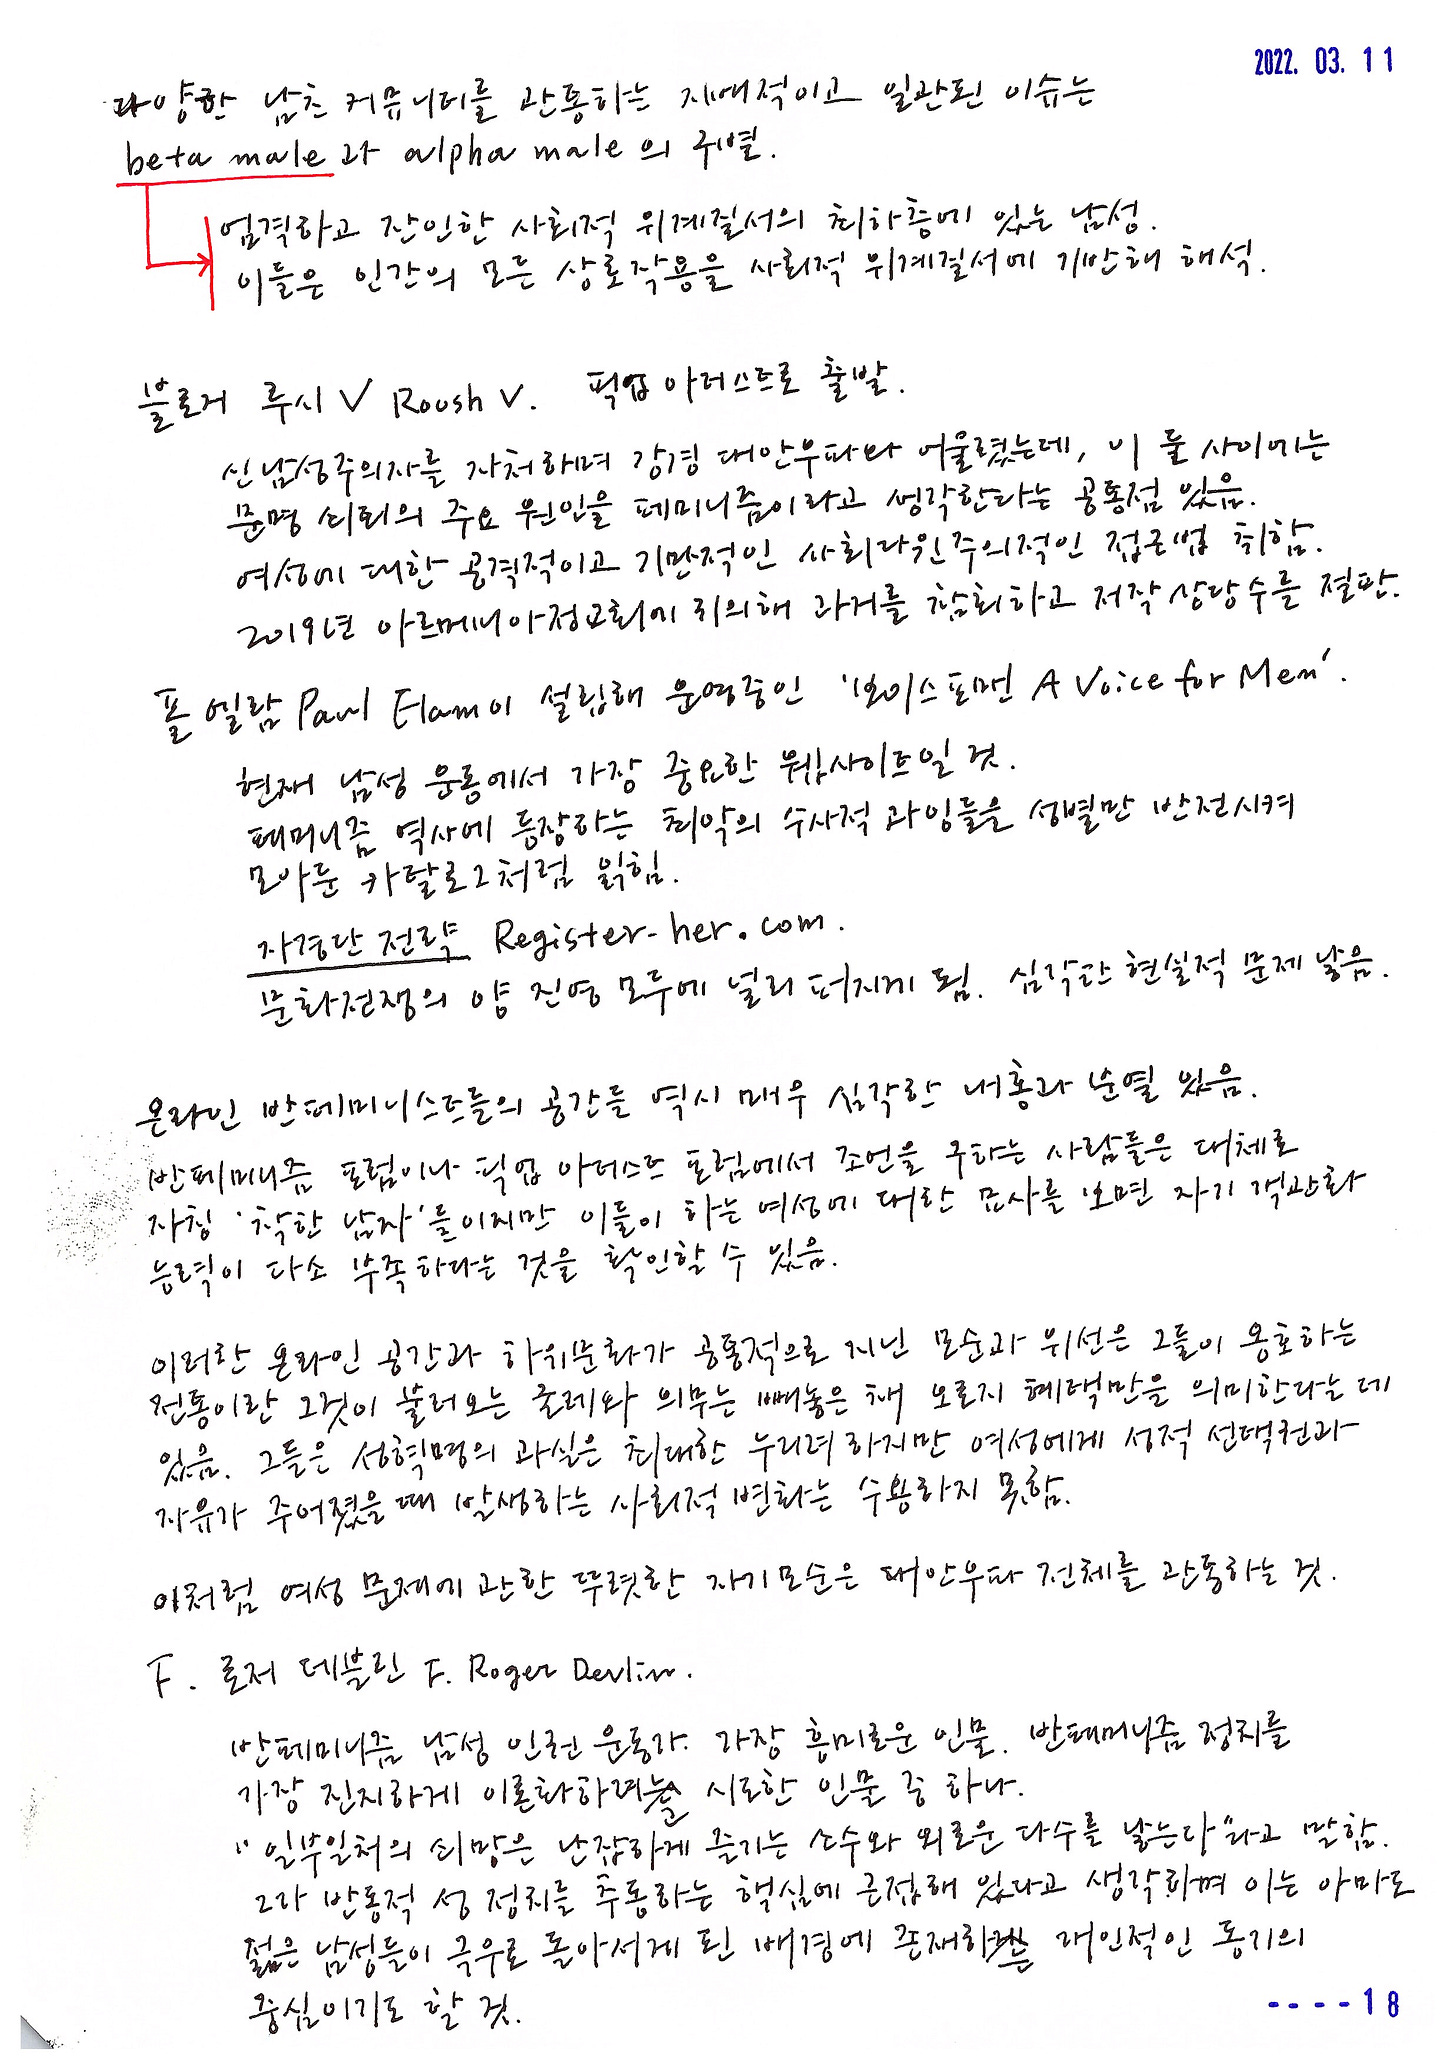 2022. 03. 11
다양한 남초 커뮤니티를 관통하는 지배적이고 일관된 이슈는
beta male과 alpha male의 구별.
엄격하고 잔인한 사회적 위계질서의 최하층에 있는 남성.
이들은 인간의 모든 상호작용을 사회적 위계질서에 기반해 해석.
블로거 루시 V Roosh V. 픽업 아티스트로 출발.
신남성주의자를 자처하며 강경 대안우파와 어울렸는데, 이 둘 사이에는
문명 쇠퇴의 주요 원인을 페미니즘이라고 생각한다는 공통점 있음.
여성에 대한 공격적이고 기만적인 사회다윈주의적인 접근법 취함.
2019년 아르메니아정교회에 귀의해 과거를 참회하고 저작 상당수를 절판.
폴 엘람 Paul Elam이 설립해 운영중인 '보이스포맨 A Voice for Men'.
현재 남성 운동에서 가장 중요한 웹사이트일 것.
페미니즘 역사에 등장하는 최악의 수사적 과잉들을 성별만 반전시켜
모아둔 카탈로그처럼 읽힘.
자경단 전략 Register-her.com.
문화전쟁의 양 진영 모두에 널리 퍼지게 됨. 심각한 현실적 문제 낳음.
온라인 반페미니스트들의 공간들 역시 매우 심각한 내홍과 분열 있음.
반페미니즘 포럼이나 픽업 아티스트 포럼에서 조언을 구하는 사람들은 대체로
자칭 '착한 남자'들이지만 이들이 하는 여성에 대한 묘사를 보면 자기 객관화
능력이 다소 부족하다는 것을 확인할 수 있음.
이러한 온라인 공간과 하위문화가 공통적으로 지닌 모순과 위선은 그들이 옹호하는
전통이란 그것이 불러오는 굴레와 의무는 빼놓은 채 오로지 혜택만을 의미한다는 데
있음. 그들은 성혁명의 과실은 최대한 누리려 하지만 여성에게 성적 선택권과
자유가 주어졌을 때 발생하는 사회적 변화는 수용하지 못함.
이처럼 여성 문제에 관한 뚜렷한 자기모순은 대안우파 전체를 관통하는 것.
F. 로저 데블린 F. Roger Devlin.
반페미니즘 남성 인권 운동가. 가장 흥미로운 인물. 반페미니즘 정치를
가장 진지하게 이론화하려는 시도한 인물 중 하나.
"일부일처의 쇠망은 난잡하게 즐기는 소수와 외로운 다수를 낳는다"라고 말함.
그가 반동적 성 정치를 추동하는 핵심에 근접해 있다고 생각하며 이는 아마도
젊은 남성들이 극우로 돌아서게 된 배경에 존재하는 개인적인 동기의
중심이기도 할 것.
----18